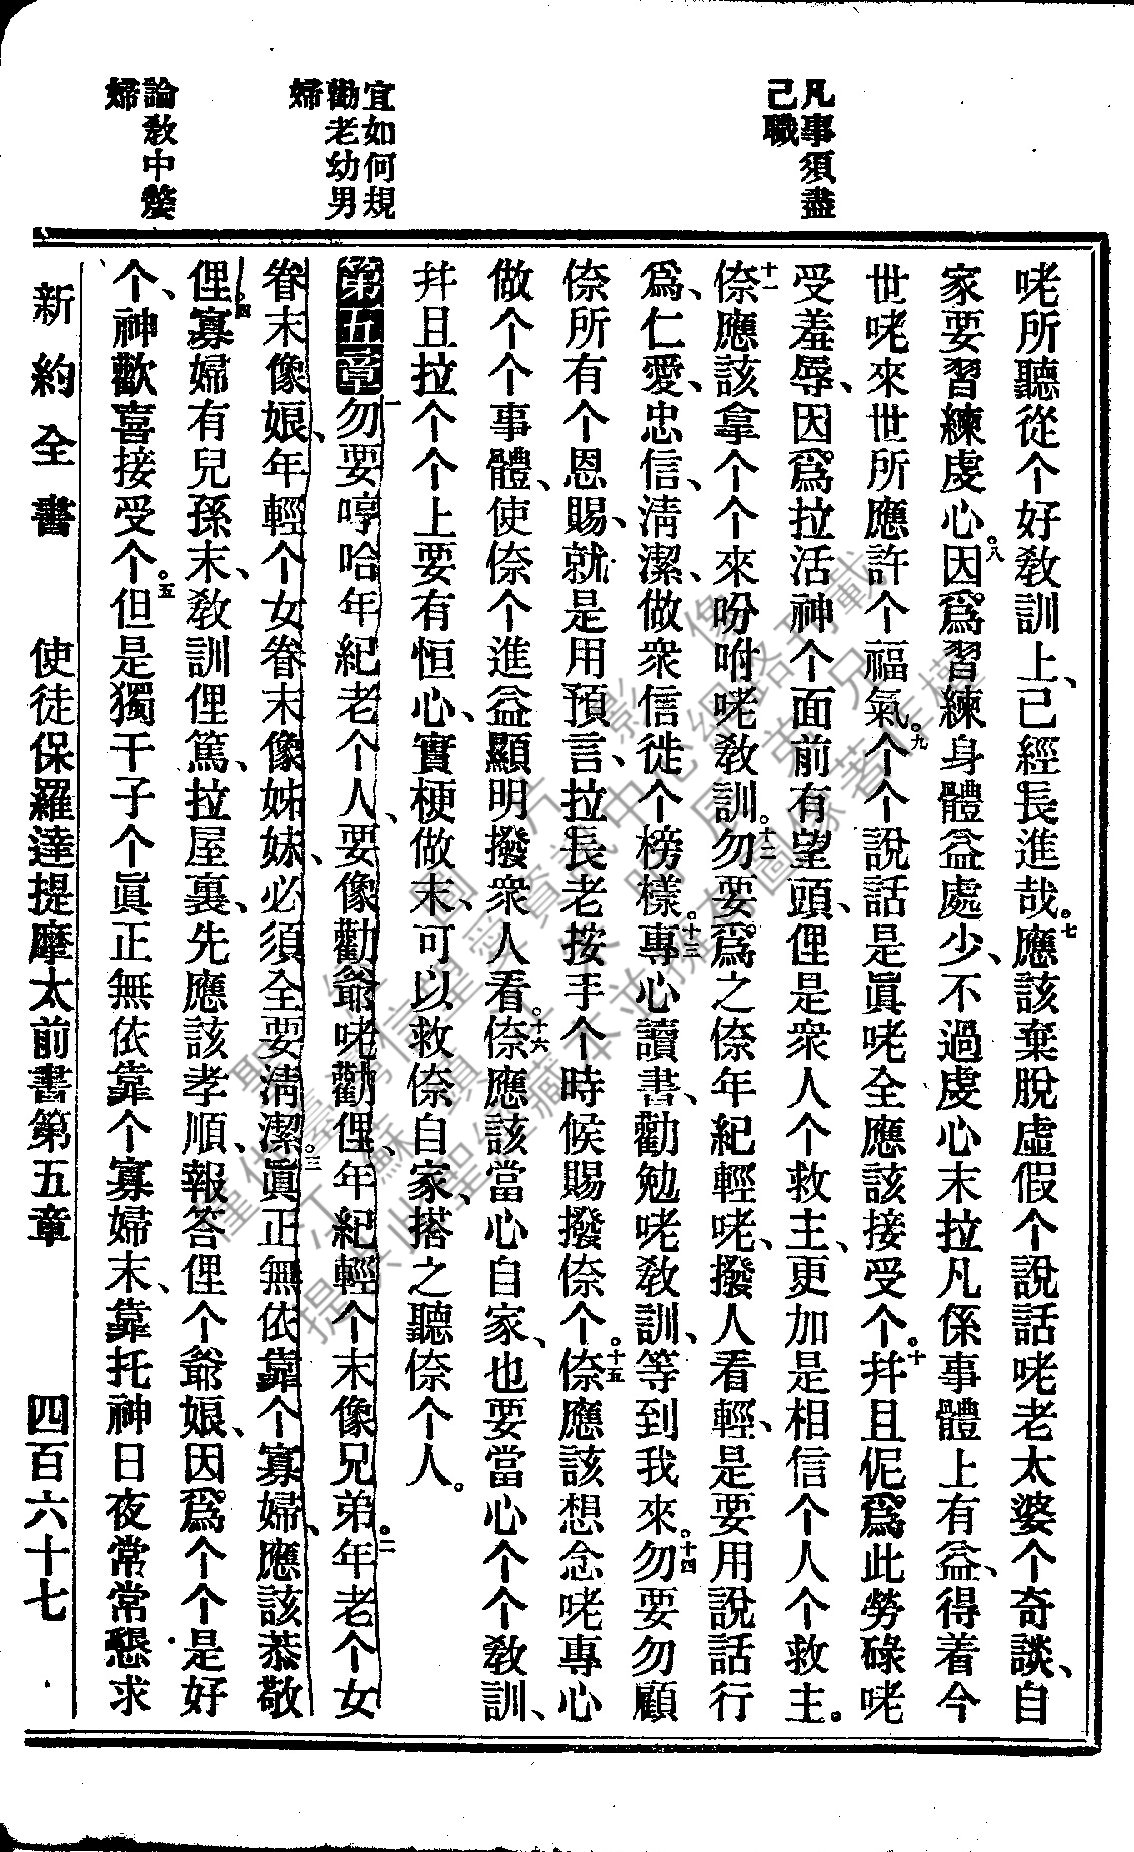 凡事須盡
己職
宜如何規
勸老幼男
婦
論教中嫠
婦
咾所聽從个好教訓上、已經長進哉。七應該棄脫虛假个說話咾老太婆个奇談、自
家要習練虔心。八因爲習練身體益處少、不過虔心末拉凡係事體上有益、得着今
世咾來世所應許个福氣。九个个說話是眞咾全應該接受个。十幷且伲爲此勞碌咾
受羞辱、因爲拉活神个面前有望頭、俚是衆人个救主、更加是相信个人个救主。
十一倷應該拿个个來吩咐咾教訓。十二勿要爲之倷年紀輕咾、撥人看輕、是要用說話行
爲、仁愛、忠信、淸潔、做衆信徒个榜樣。十三專心讀書、勸勉咾教訓、等到我來。十四勿要勿顧
倷所有个恩賜、就是用預言、拉長老按手个時候賜撥倷个。十五倷應該想念咾專心
做个个事體、使倷个進益顯明撥衆人看。十六倷應該當心自家、也要當心个个教訓、
幷且拉个个上要有恒心、實梗做末、可以救倷自家、搭之聽倷个人。
第五章一勿要哼哈年紀老个人、要像勸爺咾勸俚、年紀輕个末像兄弟。二年老个女
眷末像娘、年輕个女眷末像姊妹、必須全要淸潔。三眞正無依靠个寡婦、應該恭敬
俚。四寡婦有兒孫末、教訓俚篤、拉屋裏、先應該孝順、報答俚个爺娘、因爲个个是好
个、神歡喜接受个。五但是獨干子个眞正無依靠个寡婦末、靠托神日夜常常懇求
新約全書 使徒保羅達提摩太前書第五章 四百六十七